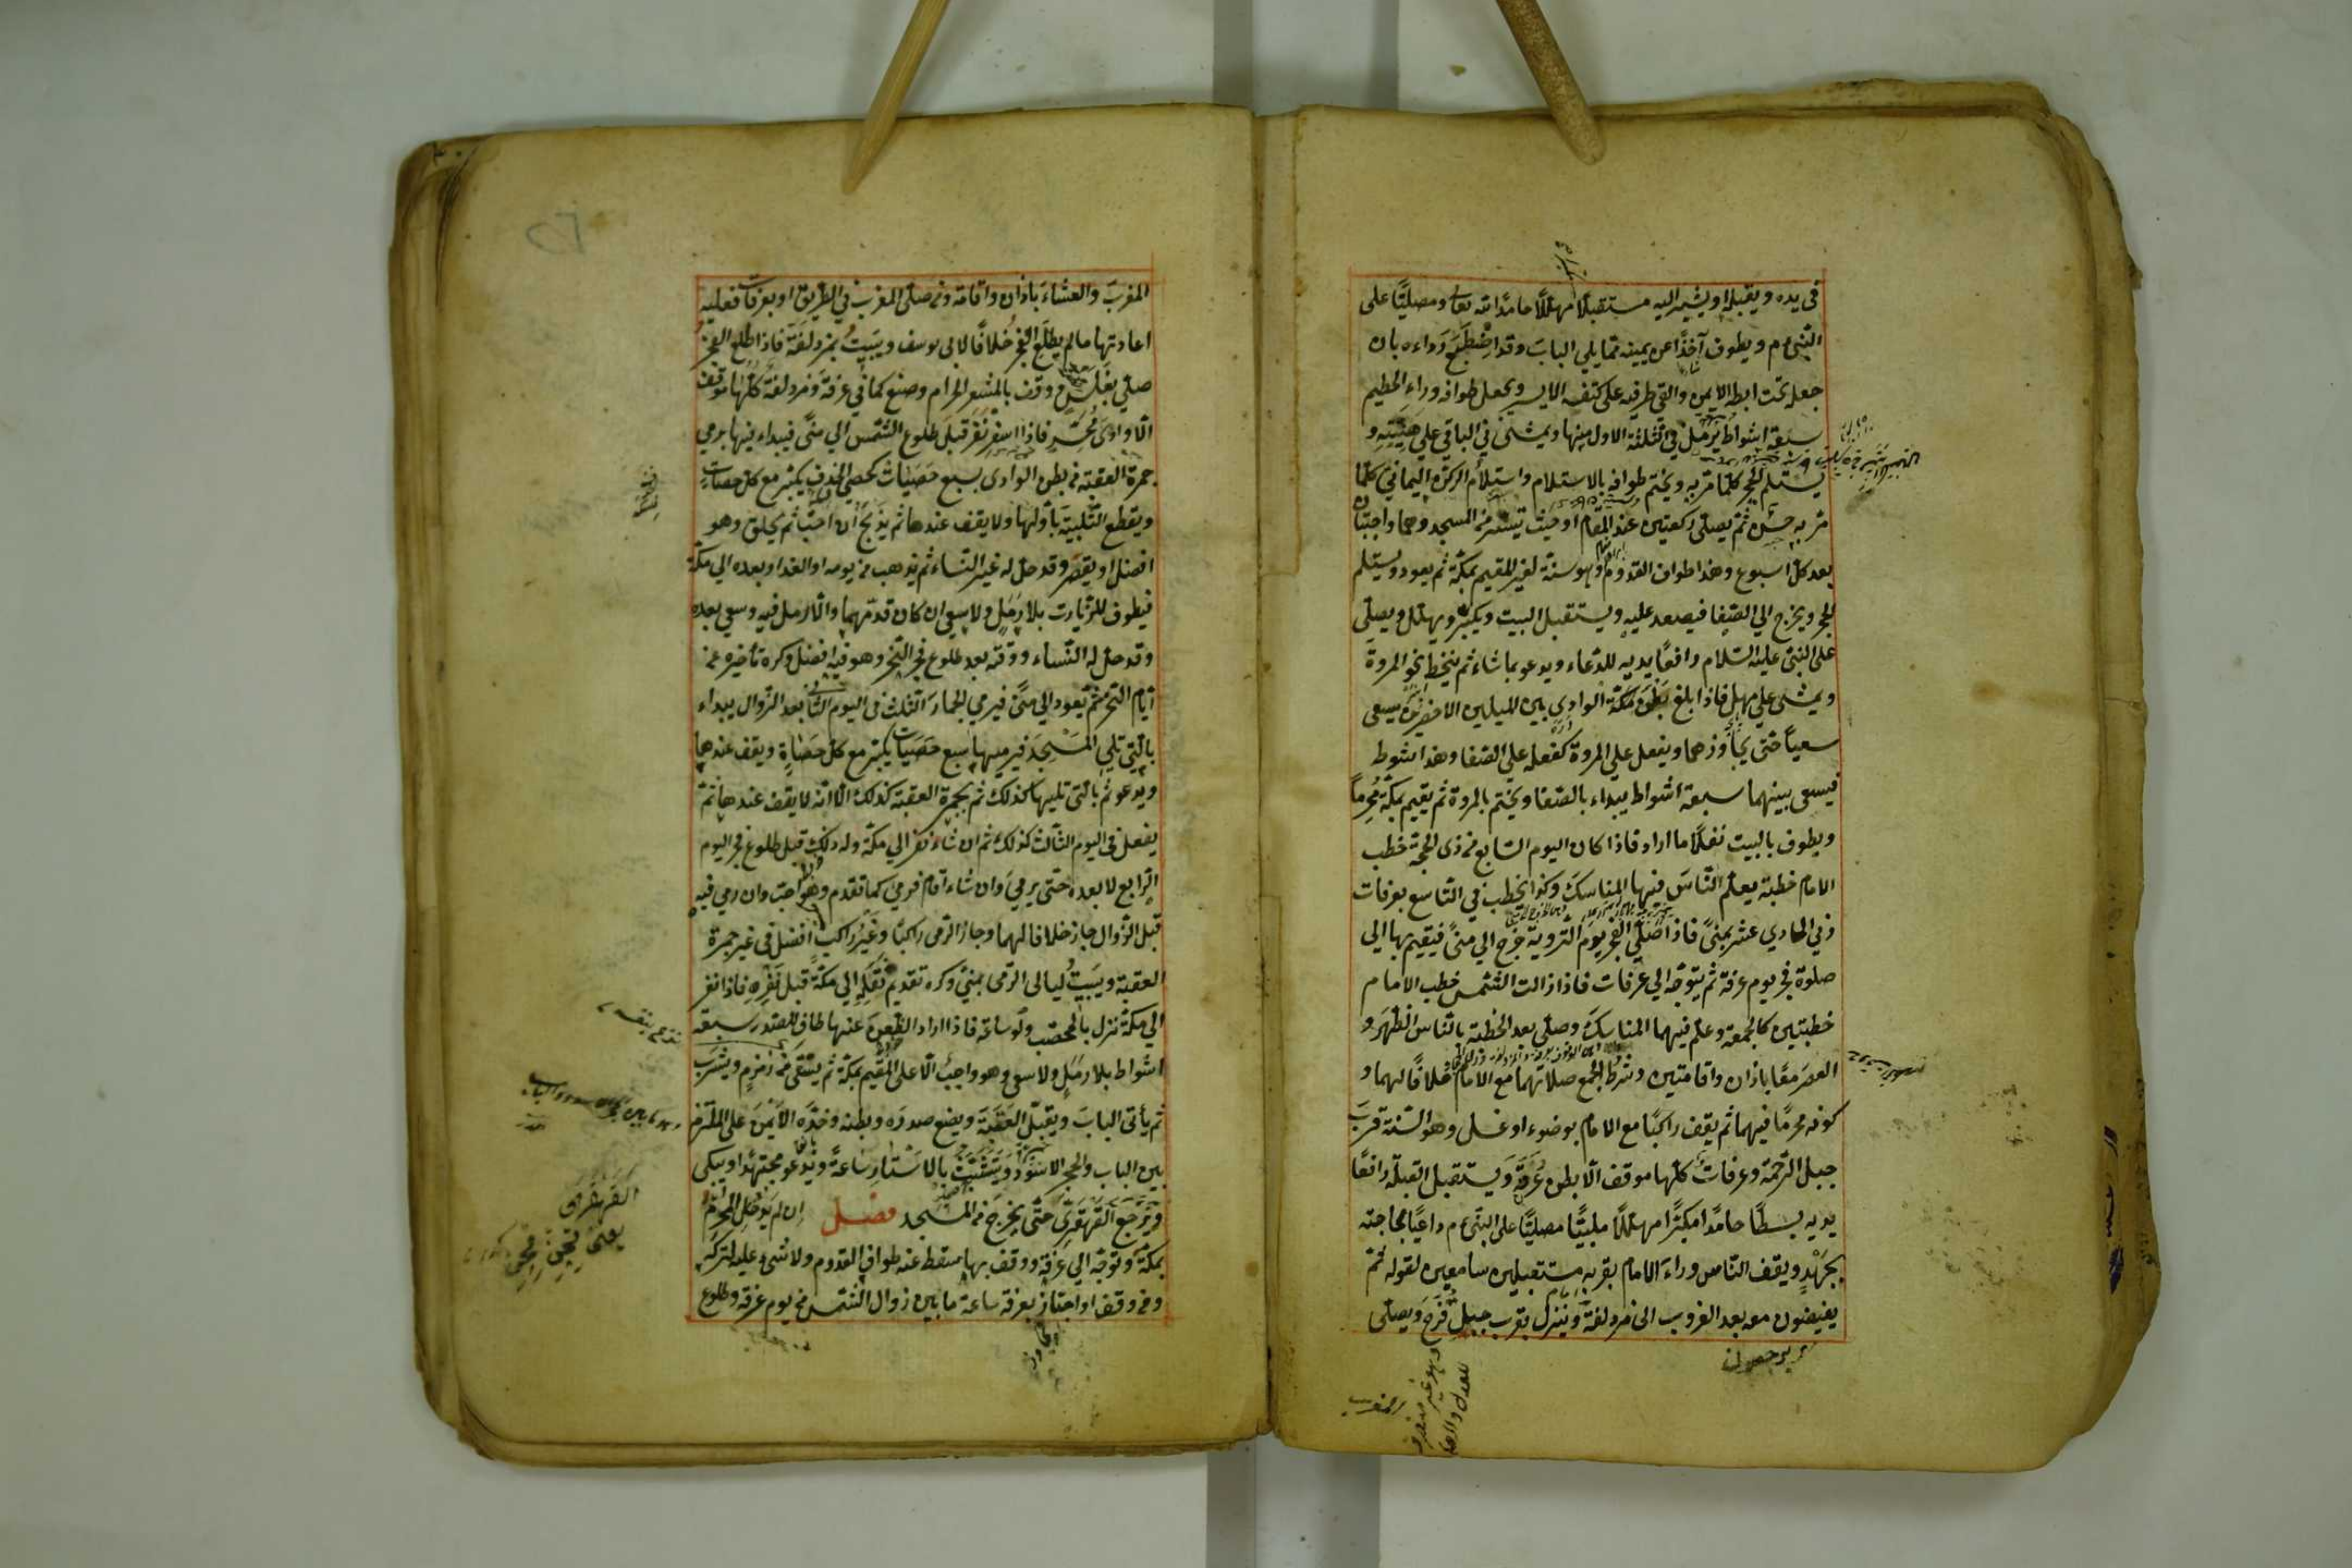 فى يده ويقبله او يشير اليه مستقبلًا مهللًا حامدًا لله تعا ومصليًّا على
النّبى م ويطوف آخذًا عن يمينه ممّا يلي البابَ وقد اضْطَبَعَ رداءه بان
جعله تحت ابطه الايمن والقى طرفيه على كتفه الايسر ويجعل طوافه وراء الحطيم
سبعة اشواط يَرْمُل في الثلثة الاول منها ويمشى في الباقي على هَيْنَتِهِ و
يستلم الحجر كلّما مرّ به ويختم طوافه بالاستلام واستلام الركن اليماني كلما
مرّ به حسن ثمّ يصلى ركعتين عند المقام او حيث تيسّر من المسجد وهما واجبتان
بعد كلّ اسبوع وهذا طواف القدوم وهو سنة لغير المقيم بمكّة ثم يعود ويستلم
الحجر ويخرج الي الصّفا فيصعد عليه ويستقبل البيت ويكبّر ويهلّل ويصلّى
على النّبىّ عليه السّلام رافعًا يديه للدّعاء ويدعو بما شاء ثم ينحط نحو المروة
ويمشى على مهل فاذا بلغ بَطْنَ مكّة الوادي بين الميلين الاخضرين سعى
سعيًا حتى يجاوزهما ويفعل على المروة كفعله على الصّفا وهذا شوط
فيسعى بينهما سبعة اشواط يبداء بالصّفا ويختم بالمروة ثم يقيم بمكّة مُحْرِمًا
ويطوف بالبيت نفلًا ما اراد فاذا كان اليوم السّابع من ذى الحجّة خطب
الامام خطبة يعلّم النّاسَ فيها المناسكَ وكذا يخطب في التّاسع بعرفات
وفي الحادي عشر بمنىً فاذا صلّى الفجر يوم التّروية خرج الي منىً فيقيم بها الى
صلوة فجر يوم عرفة ثم يتوجّه الي عرفات فاذا زالت الشّمس خطب الامام
خطبتين كالجمعة وعلّم فيهما المناسكَ وصلّى بعد الخطبة بالنّاس الظّهرَ و
العصرَ معًا باذان واقامتين وشرطُ الجمع صلاتهما مع الامام خلافًا لهما و
كونه محرمًا فيهما ثم يقف راكبًا مع الامام بوضوء او غسل وهو السّنة قربَ
جبل الرّحمة وعرفات كلّها موقف الّا بطن عُرَنَةَ ويستقبل القبلة رافعًا
يديه بسطًا حامدًا مكبّرًا مهللًا ملبيًّا مصليًّا على النّبىّ م داعيًا بحاجته
بِجَهْدٍ ويقف النّاس وراءَ الامام بقربه مستقبلين سامعين لقوله ثمّ
يفيضون معه بعد الغروب الى مزدلفة وينزل بقرب جبل قُزَح ويصلى
المغرب
المغربَ والعشاءَ باذان واقامة ومن صلّى المغرب في الطّريق او بعرفات فعليه
اعادتها ما لم يطلع الفجر خلافًا لابى يوسف ويبيتُ بمزدلفة فاذا طلع الفجر
صلّى بغَلَسٍ ووقف بالمشعر الحرام وصنع كما في عرفة ومزدلفة كلّها موقف
الّا وادىَ مُحَسِّرٍ فاذا اسفر نفر قبل طلوع الشّمس الي منًى فيبداء فيها برمي
جمرة العقبة من بطن الوادى بسبع حَصَيات كحصى الخذف يكبّر مع كل حصاتٍ
ويقطع التّلبية باوّلها ولا يقف عندها ثم يذبح ان احبّ ثم يحلق وهو
افضل او يقصّر وقد حلّ له غير النّساء ثم يذهب من يومه او الغد او بعده الي مكّة
فيطوف للزّيارت بلا رَمَلٍ ولا سعى ان كان قدّمهما والّا رمل فيه وسعى بعده
وقد حلّ له النّساء ووقته بعد طلوع فجر النّحر وهو فيه افضل وكره تأخيره عن
ايّام النّحر ثمّ يعود الي منًى فيرمي الجمارَ الثّلث في اليوم الثّانى بعد الزّوال يبداء
بالّتى تلى المَسْجِدَ فيرميها بسبع حَصَيَاتٍ يكبّر مع كلّ حَصَاةٍ ويقف عندها
ويدعو ثم بالّتى تليها كذلك ثم بجمرة العقبة كذلك الّا انّه لا يقف عندها ثمّ
يفعل فى اليوم الثّالث كذلك ثم ان شاء نفر الي مكّة وله ذلك قبل طلوع فجر اليوم
الرّابع لا بعده حتّى يرمىَ وان شاء اقام فرمى كما تقدم وهو احبّ وان رمى فيه
قبل الزّوال جاز خلافا لهما وجاز الرّمى راكبًا وغيرُ راكبٍ افضل فى غير جمرة
العقبة ويبيتُ ليالى الرّمى بمنىً وكره تقديم ثَقَلِهِ الى مكّة قبل نَفْرِهِ فاذا نفر
الي مكّة نزل بالمحصّب ولو ساعة فاذا اراد الظّعن عنها طاف للصّدر سبعة
اشواط بلا رمَلٍ ولا سعى وهو واجبٌ الّا على المقيم بمكّة ثم يستقى من زمزم ويشرب
ثم يأتى البابَ ويقبّل العَتَبَةَ ويضع صدره وبطنه وخدّه الايمنَ على الملتزم
بين الباب والحجر الاسود ويتشبّث بالاستار ساعةً ويدعو مجتهدًا ويبكى
ويرجع القهقرى حتّى يخرج من المسجد فصل ان لم يدخل المحرمُ
بمكّة وتوجّه الي عرفة ووقف بها سقط عنه طواف القدوم ولا شىء عليه لتركه
ومن وقف او اجتاز بعرفة ساعة ما بين زوال الشّمس من يوم عرفة وطلوع
القهقرى